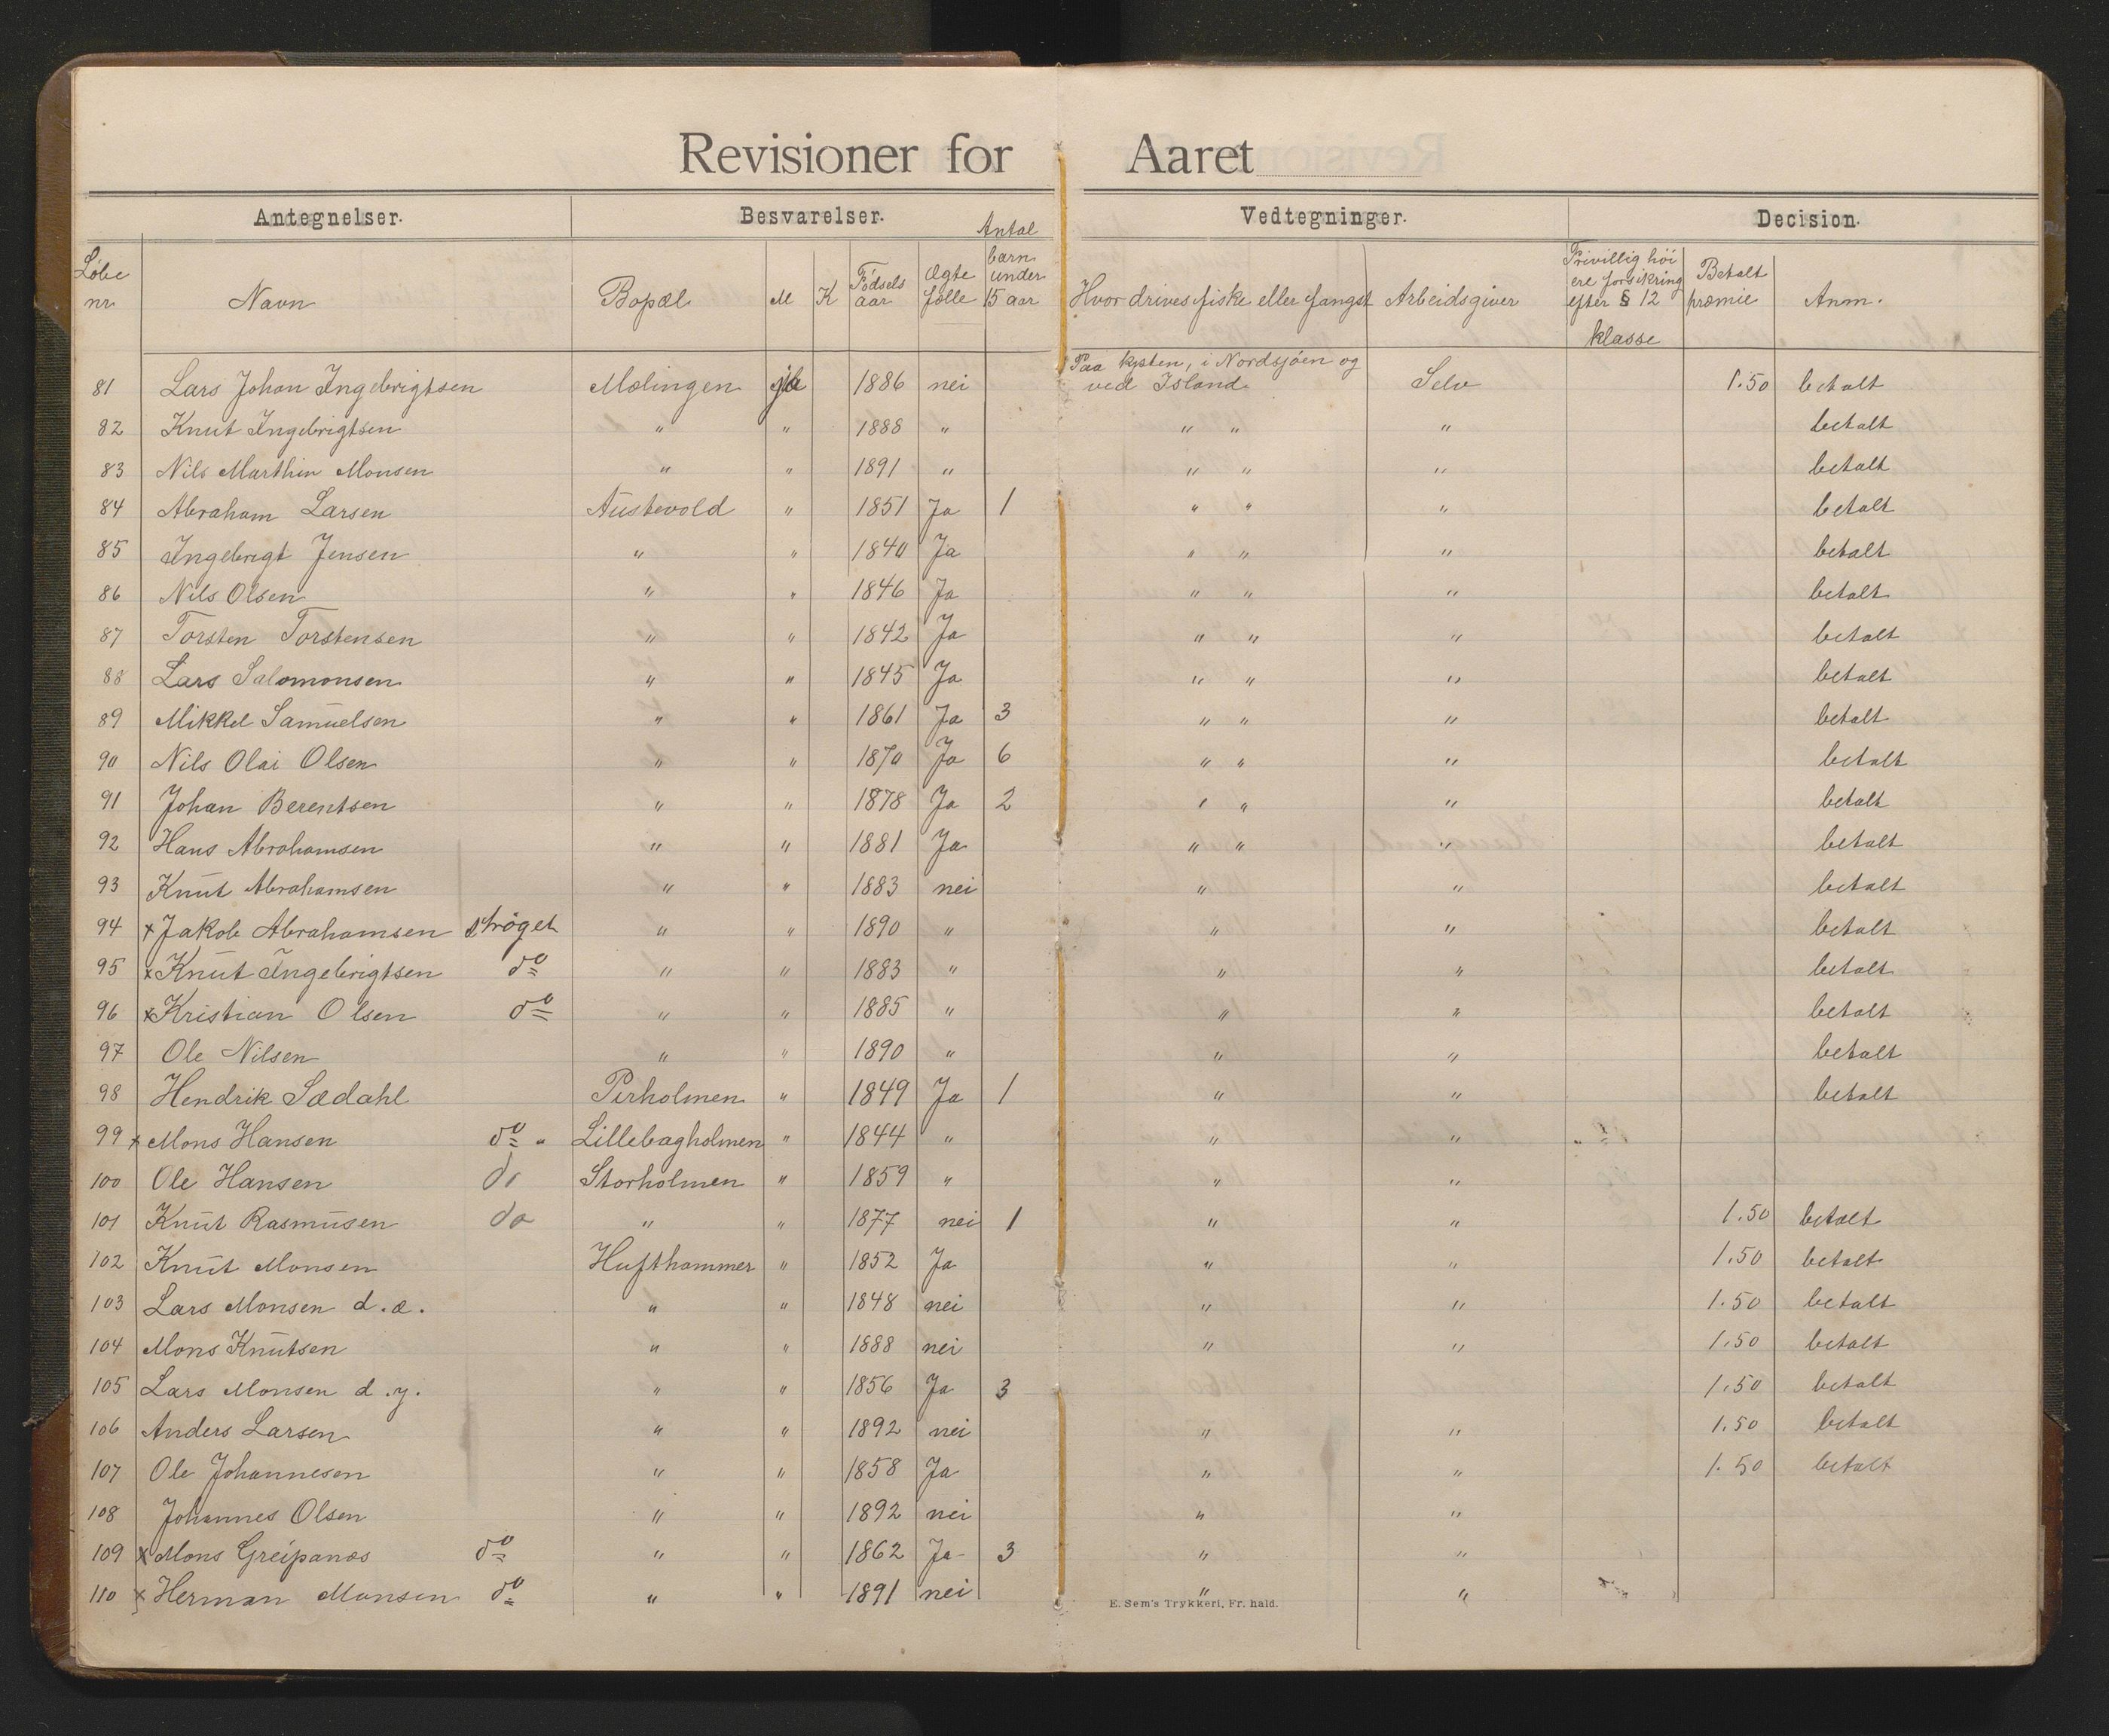 Revisioner for Aaret
Antegnelser. Besvarelser. Vedtegninger. Decision.
Løbe nr. Navn Bopæl M K Fødsels aar Ægte fælle Antal barn under 15 aar Hvor drives fiske eller fangst Arbeidsgiver Frivillig høiere forsikring efter § 12 klasse Betalt præmie Anm.
81 Lars Johan Ingebrigtsen Mælingen ja 1886 nei Paa kysten, i Nordsjøen og ved Island Selv 1.50 betalt
82 Knut Ingebrigtsen " " 1888 " " " " betalt
83 Nils Marthin Monsen " " 1891 " " " " betalt
84 Abraham Larsen Austevold " 1851 Ja 1 " " " betalt
85 Ingebrigt Jensen " " 1840 Ja " " " betalt
86 Nils Olsen " " 1846 Ja " " " betalt
87 Torsten Torstensen " " 1842 Ja " " " betalt
88 Lars Salomonsen " " 1845 Ja " " " betalt
89 Mikkel Samuelsen " " 1861 Ja 3 " " " betalt
90 Nils Olai Olsen " " 1870 Ja 6 " " " betalt
91 Johan Berentsen " " 1878 Ja 2 " " " betalt
92 Hans Abrahamsen " " 1881 Ja " " " betalt
93 Knut Abrahamsen " " 1883 nei " " betalt
94 x Jakob Abrahamsen strøget " " 1890 " " " betalt
95 x Knut Ingebrigtsen do " " 1883 " " " betalt
96 x Kristian Olsen do " " 1885 " " " betalt
97 Ole Nilsen " " 1890 " " " betalt
98 Hendrik Sædahl Pirholmen " 1849 Ja 1 " " betalt
99 x Mons Hansen do " Lillebagholmen " 1844 " " "
100 Ole Hansen do Storholmen " 1859 " " "
101 Knut Rasmusen do " " 1877 nei 1 " " 1.50 betalt
102 Knut Monsen Hufthammer " 1852 Ja " " 1.50 betalt
103 Lars Monsen d.æ. " " 1848 nei " " 1.50 betalt
104 Mons Knutsen " " 1888 nei " " 1.50 betalt
105 Lars Monsen d.y. " " 1856 Ja 3 " " 1.50 betalt
106 Anders Larsen " " 1892 nei " " 1.50 betalt
107 Ole Johannesen " " 1858 Ja " " 1.50 betalt
108 Johannes Olsen " " 1892 nei " "
109 x Mons Greipanæs do " " 1862 Ja 3 " "
110 x Herman Monsen do " " 1891 nei " "
E. Sem's Trykkeri, Fr. hald.